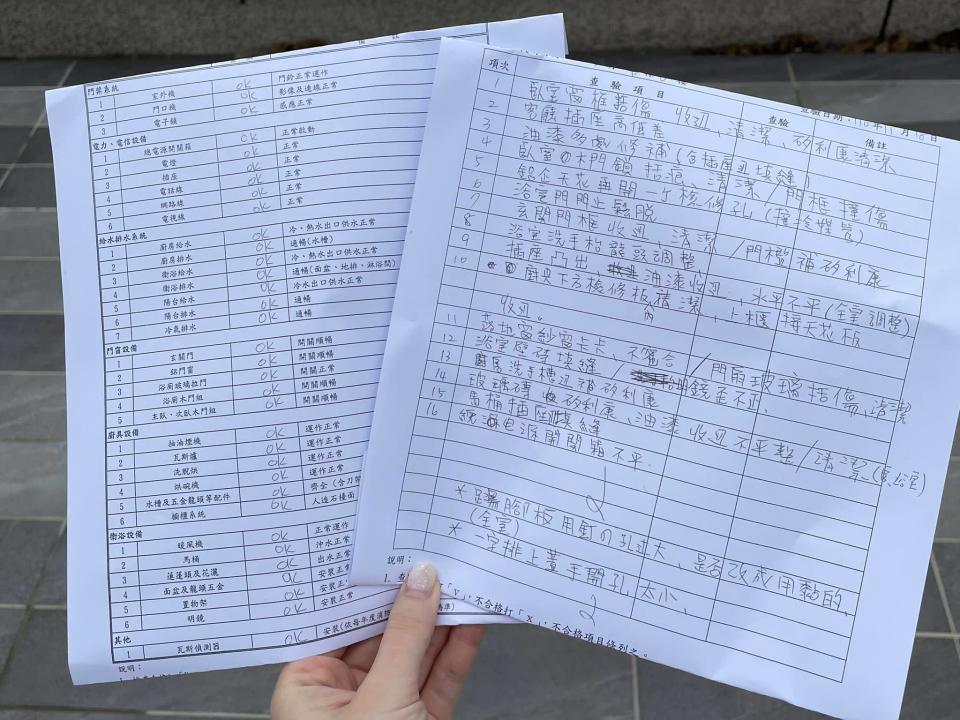 門禁系統
1 室外機 OK 門鈴正常運作
2 門口機 OK 影像及連線正常
3 電子鎖 OK 感應正常
電力、電信設備
1 總電源開關箱 OK 正常啟動
2 電燈 OK 正常
3 插座 OK 正常
4 電話線 OK 正常
5 網路線 OK 正常
6 電視線 OK 正常
給水排水系統
1 廚房給水 OK 冷、熱水出口供水正常
2 廚房排水 OK 通暢(水槽)
3 衛浴給水 OK 冷、熱水出口供水正常
4 衛浴排水 OK 通暢(面盆、地排、淋浴間)
5 陽台給水 OK 冷水出口供水正常
6 陽台排水 OK 通暢
7 冷氣排水 OK 通暢
門窗設備
1 玄關門 OK 開關順暢
2 鋁門窗 OK 開關順暢
3 浴廁玻璃拉門 OK 開關正常
4 浴廁木門組 OK 開關順暢
5 主臥、次臥木門組 OK 開關順暢
廚具設備
1 抽油煙機 OK 運作正常
2 瓦斯爐 OK 運作正常
3 洗脫烘 OK 運作正常
4 烘碗機 OK 運作正常
5 水槽及五金龍頭等配件 OK 齊全(含刀架
6 櫥櫃系統 OK 人造石檯面
衛浴設備
1 暖風機 OK 正常運作
2 馬桶 OK 沖水正常
3 蓮蓬頭及花灑 OK 出水正常
4 面盆及龍頭五金 OK 安裝正
5 置物架 OK 安裝正
6 明鏡 OK 安裝正常
其他
1 瓦斯偵測器 OK 安裝(依每年度消
說明：
項次 查驗項目 查驗 備註
查驗日期：110年11月18日
1 臥室窗框 收邊、清潔、矽利康清潔
2 客廳插座高低差
3 油漆多處修補(含插座邊填縫)
4 臥室の木門鎖 清潔/門框撞傷
5 鋁企天花再開一個檢修孔
6 浴室門門止鬆脫
7 玄關門框收邊、清潔/門檻補矽利康
8 浴室洗手枱龍頭調整
9 插座凸出 油漆收邊、水平不平(全室調整)
10 廚央下方檢修板清潔、上櫃接天花板
收邊。
11 落地窗紗窗卡卡、不密合/門扇玻璃括傷、清潔
12 浴室壁磚填縫/明鏡歪不正、
13 廚房洗手槽邊補矽利康
14 玻璃磚收矽利康、油漆收邊不平整/清潔
15 馬桶插座填縫
16 總電源開關箱不平.
*踢腳板用釘の孔過大、是否改成用黏的、
(全室)
*一字排上蓋手開孔太小、
說明：
1. 查 「v」，不合格打「x」，不合格項目條列之。